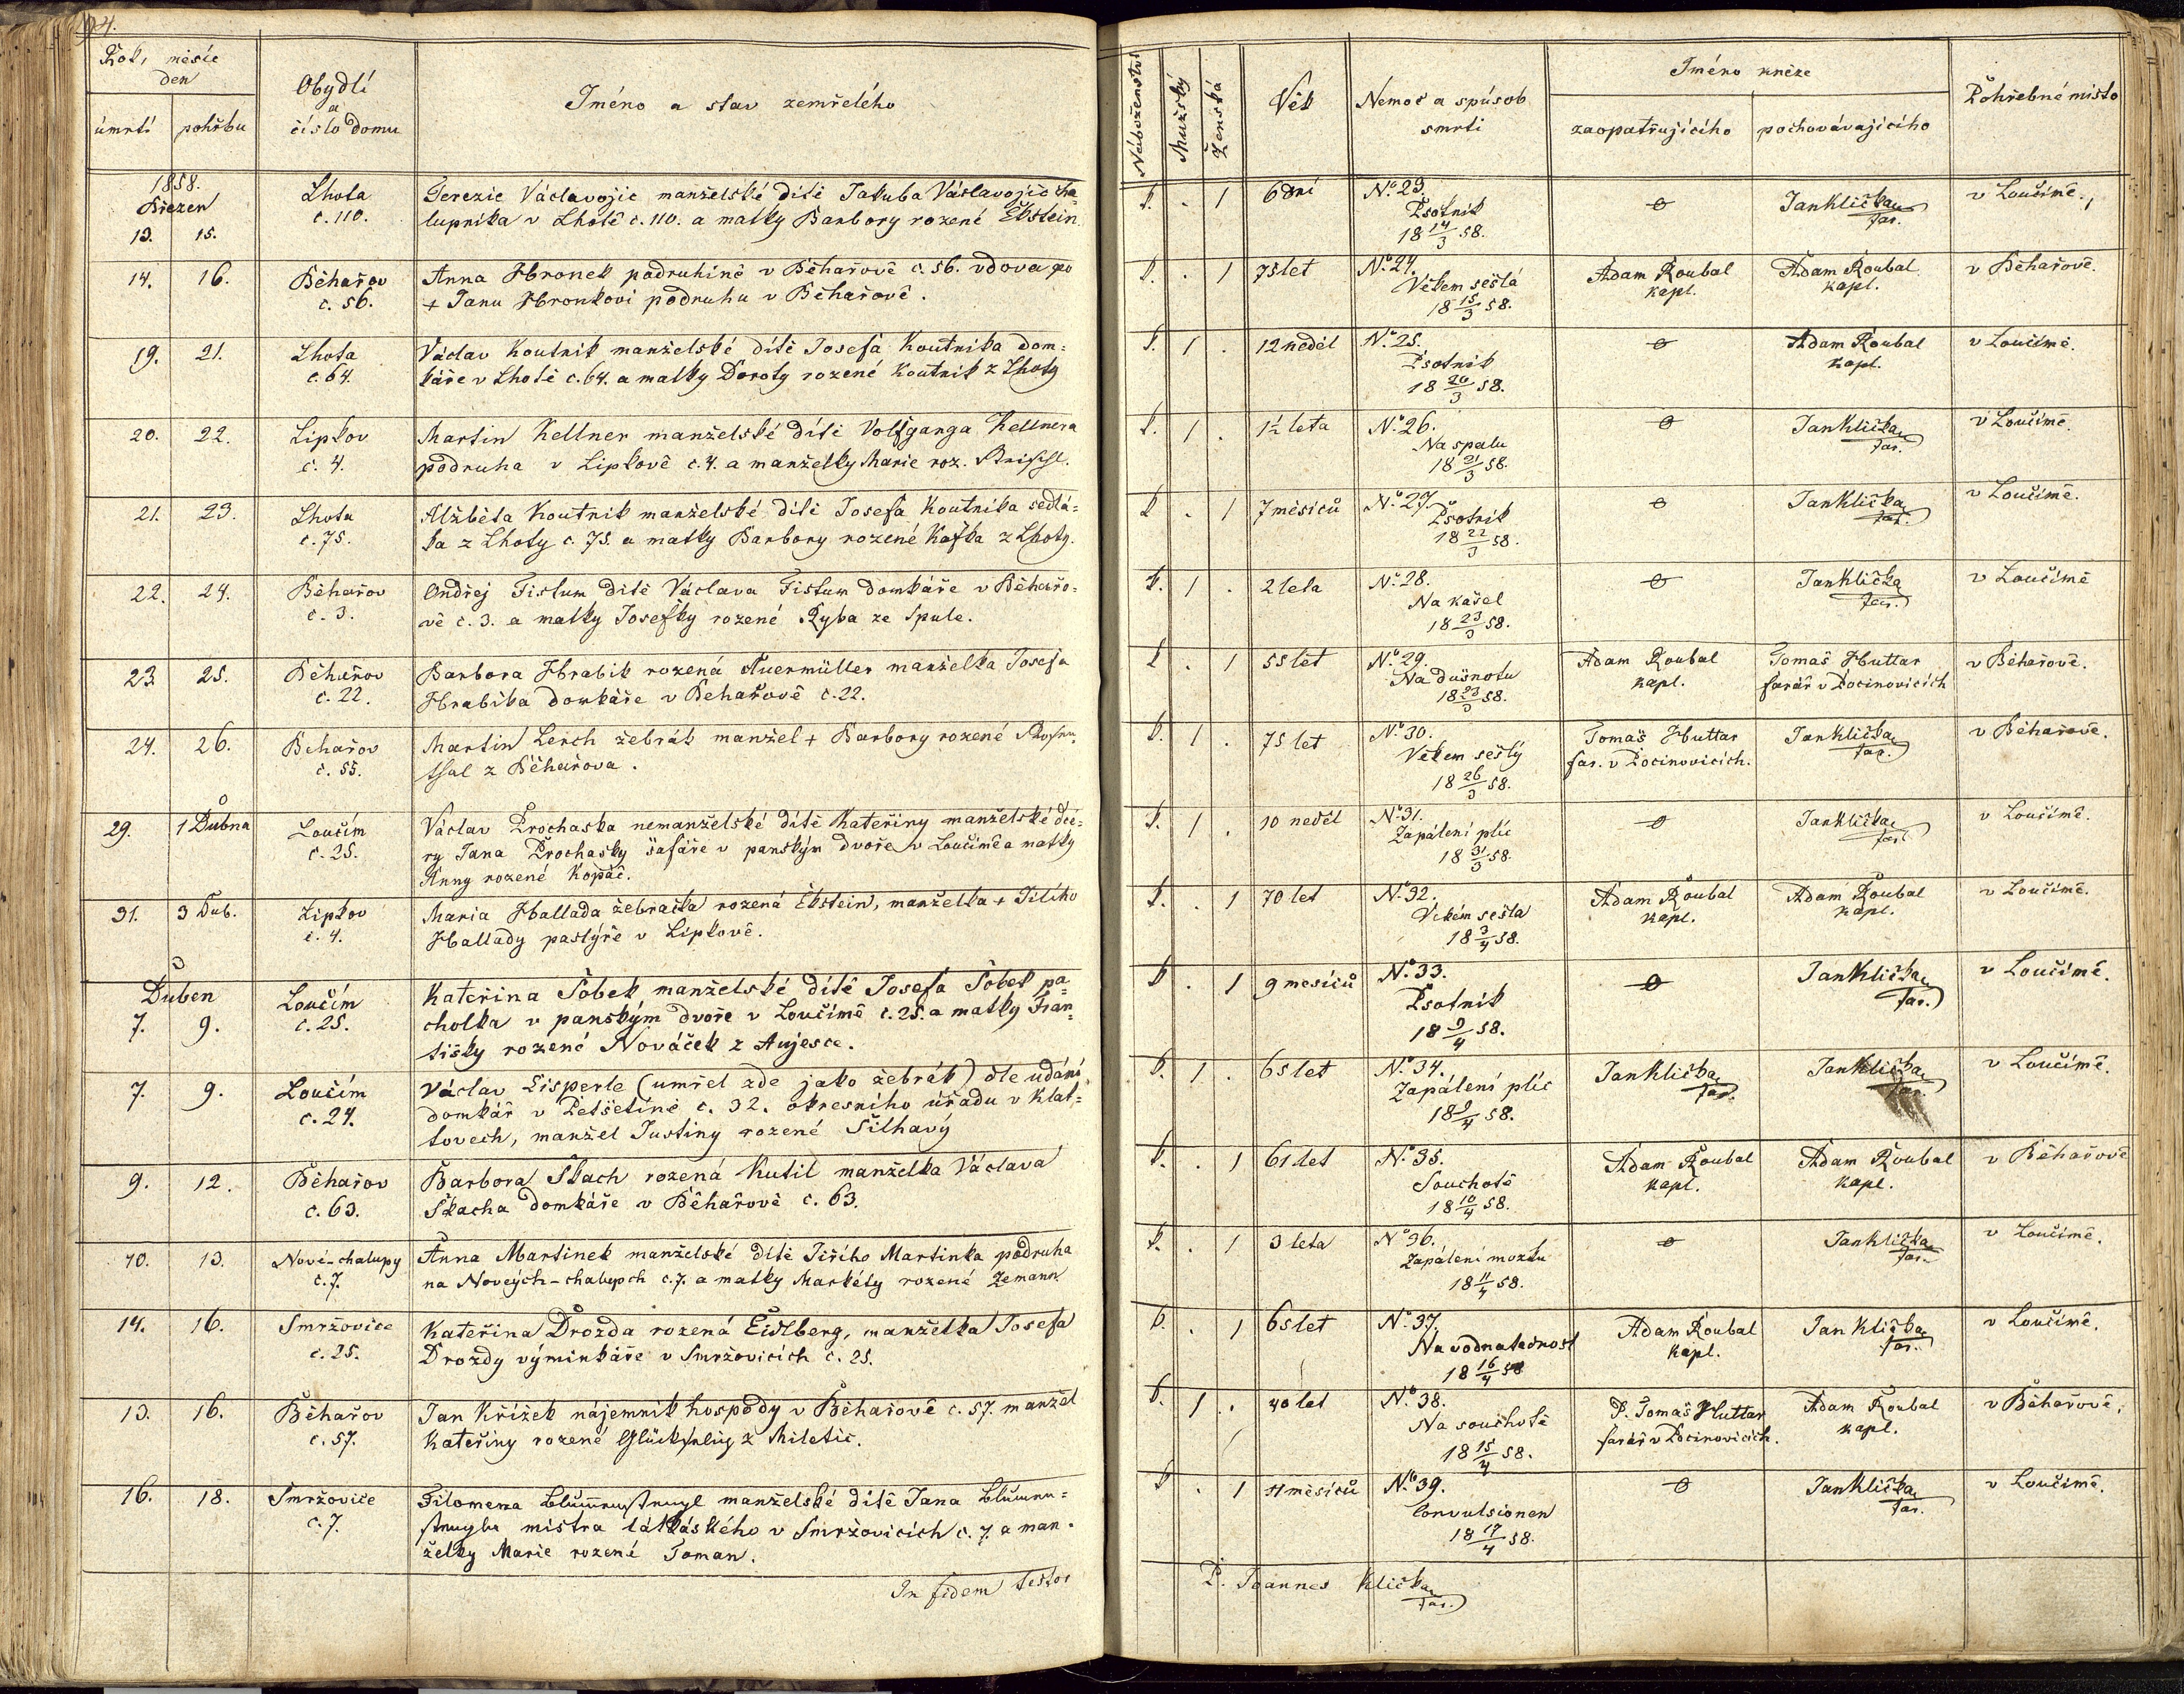 94.
Rok, měsíc
den
úmrtí pohřbu
Obydlí
a
číslo domu
Jméno a stav zemřelého
1858.
Březen
13. 15.
Lhota
č. 110.
Terezie Václavojic manželské dítě Jakuba Václavojic cha=
lupníka v Lhotě č. 110. a matky Barbory rozené Ebstein.
14. 16.
Běhařov
č. 56.
Anna Hronek podruhině v Běhařově č. 56. vdova po
+ Janu Hronkovi podruhu v Běhařově.
19. 21.
Lhota
č. 64.
Václav Koutnik manželské dítě Josefa Koutnika dom=
káře v Lhotě č. 64. a matky Doroty rozené Koutnik z Lhoty
20. 22.
Lipkov
č. 4.
Martin Kellner manželské dítě Volfganga Kellnera
podruha v Lipkově č. 4. a manželky Marie roz.
21. 23.
Lhota
č. 75.
Alžběta Koutnik manželské dítě Josefa Koutnika sedlá=
ka z Lhoty č. 75. a matky Barbory rozené Kafka z Lhoty.
22. 24.
Běhařov
č. 3.
Ondřej Fistum dítě Václava Fistum domkáře v Běhařo=
vě č. 3. a matky Josefky rozené Ryba ze Spule.
23. 25.
Běhařov
č. 22.
Barbora Hrabik rozená Auermüller manželka Josefa
Hrabika domkáře v Běhařově č. 22.
24. 26.
Běhařov
č. 55.
Martin Lerch žebrák manžel + Barbory rozené Rosen=
thal z Běhařova.
29. 1 Dubna
Loučim
č. 25.
Václav Prochaska nemanželské dítě Kateřiny manželské dce=
ry Jana Prochasky šafáře v panským dvoře v Loučimě a matky
Anny rozené Kopač.
31. 3 Dub.
Lipkov
č. 4.
Maria Hallada žebračka rozená Ebstein, manželka + Jiliho
Hallady pastýře v Lipkově.
Duben
7. 9.
Loučim
č. 25.
Kateřina Sobek manželské dítě Josefa Sobek pa=
cholka v panským dvoře v Loučimě č. 25. a matky Fran=
tišky rozené Nováček z Aujesce.
7. 9.
Loučim
č. 24.
Václav Eisperle (umřel zde jako žebrák) dle udání
domkář v Petšetíně č. 32. okresního úřadu v Klat=
tovech, manžel Justiny rozené Šilhavý
9. 12.
Běhařov
č. 63.
Barbora Skach rozená Kutil manželka Václava
Skacha domkáře v Běhařově č. 63.
10. 13.
Nové-chalupy
č. 7.
Anna Martinek manželské dítě Jiřího Martinka podruha
na Nových-chalupch č. 7. a matky Markéty rozené Zemann
14. 16.
Smržovice
č. 25.
Kateřina Drozda rozená Eidlberg, manželka Josefa
Drozdy výminkáře v Smržovicích č. 25.
13. 16.
Běhařov
č. 57.
Jan Křížek nájemník hospody v Běhařově č. 57. manžel
Kateřiny rozené z Miletic.
16. 18.
Smržovice
č. 7.
Filomena manželské dítě Jana
mistra látkáského v Smržovicích č. 7. a man=
želky Marie rozené Toman.
In fidem testor
Náboženství
Mužský
Ženská
Věk
Nemoc a spúsob
smrti
Jméno kněze
zaopatřujícího pochovávajícího
Pohřebné místo
1 6 dní No. 23.
Psotnik
18 14/3 58.
Jan Klička
far.
v Loučimě.
1 75 let No. 24.
Věkem sešlá
18 15/3 58.
Adam Roubal
kapl.
Adam Roubal
kapl.
v Běhařově.
1 12 neděl No. 25.
Psotnik
18 20/3 58.
Adam Roubal
kapl.
v Loučimě.
1 1½ leta No. 26.
Na spalu
18 21/3 58.
Jan Klička
far.
v Loučimě.
1 7 měsíců No. 27.
Psotnik
18 22/3 58.
Jan Klička
far.
v Loučimě.
1 2 leta No. 28.
Na kašel
18 23/3 58.
Jan Klička
far.
v Loučimě
1 55 let No. 29.
Na dušnotu
18 23/3 58.
Adam Roubal
kapl.
Tomaš Huttar
farář v Pocinovicích
v Běhařově.
1 75 let No. 30.
Věkem sešlý
18 26/3 58.
Tomaš Huttar
far. v Pocinovicích.
Jan Klička
far.
v Běhařově.
1 10 neděl No. 31.
Zapálení plic
18 31/3 58.
Jan Klička
far.
v Loučimě.
1 70 let No. 32.
Věkem sešla
18 3/4 58.
Adam Roubal
kapl.
Adam Roubal
kapl.
v Loučimě.
1 9 mesíců No. 33.
Psotnik
18 9/4 58.
Jan Klička
far.
v Loučimě.
1 65 let No. 34.
Zapálení plic
18 9/4 58.
Jan Klička
far.
Jan Klička
far.
v Loučimě.
1 61 let No. 35.
Souchotě
18 10/4 58.
Adam Roubal
kapl.
Adam Roubal
kapl.
v Běhařově
1 3 leta No. 36.
Zapálení mozku
18 11/4 58.
Jan Klička
far.
v Loučimě.
1 65 let No. 37.
Na vodnatednost
18 16/4 58
Adam Roubal
kapl.
Jan Klička
far.
v Loučimě.
1 40 let No. 38.
Na souchotě
18 15/4 58.
P. Tomaš Huttar
farář v Pocinovicích.
Adam Roubal
kapl.
v Běhařově.
1 měsíců No. 39.
Convulsionen
18 17/4 58.
Jan Klička
far.
v Loučimě.
P. Joannes Klička
far.